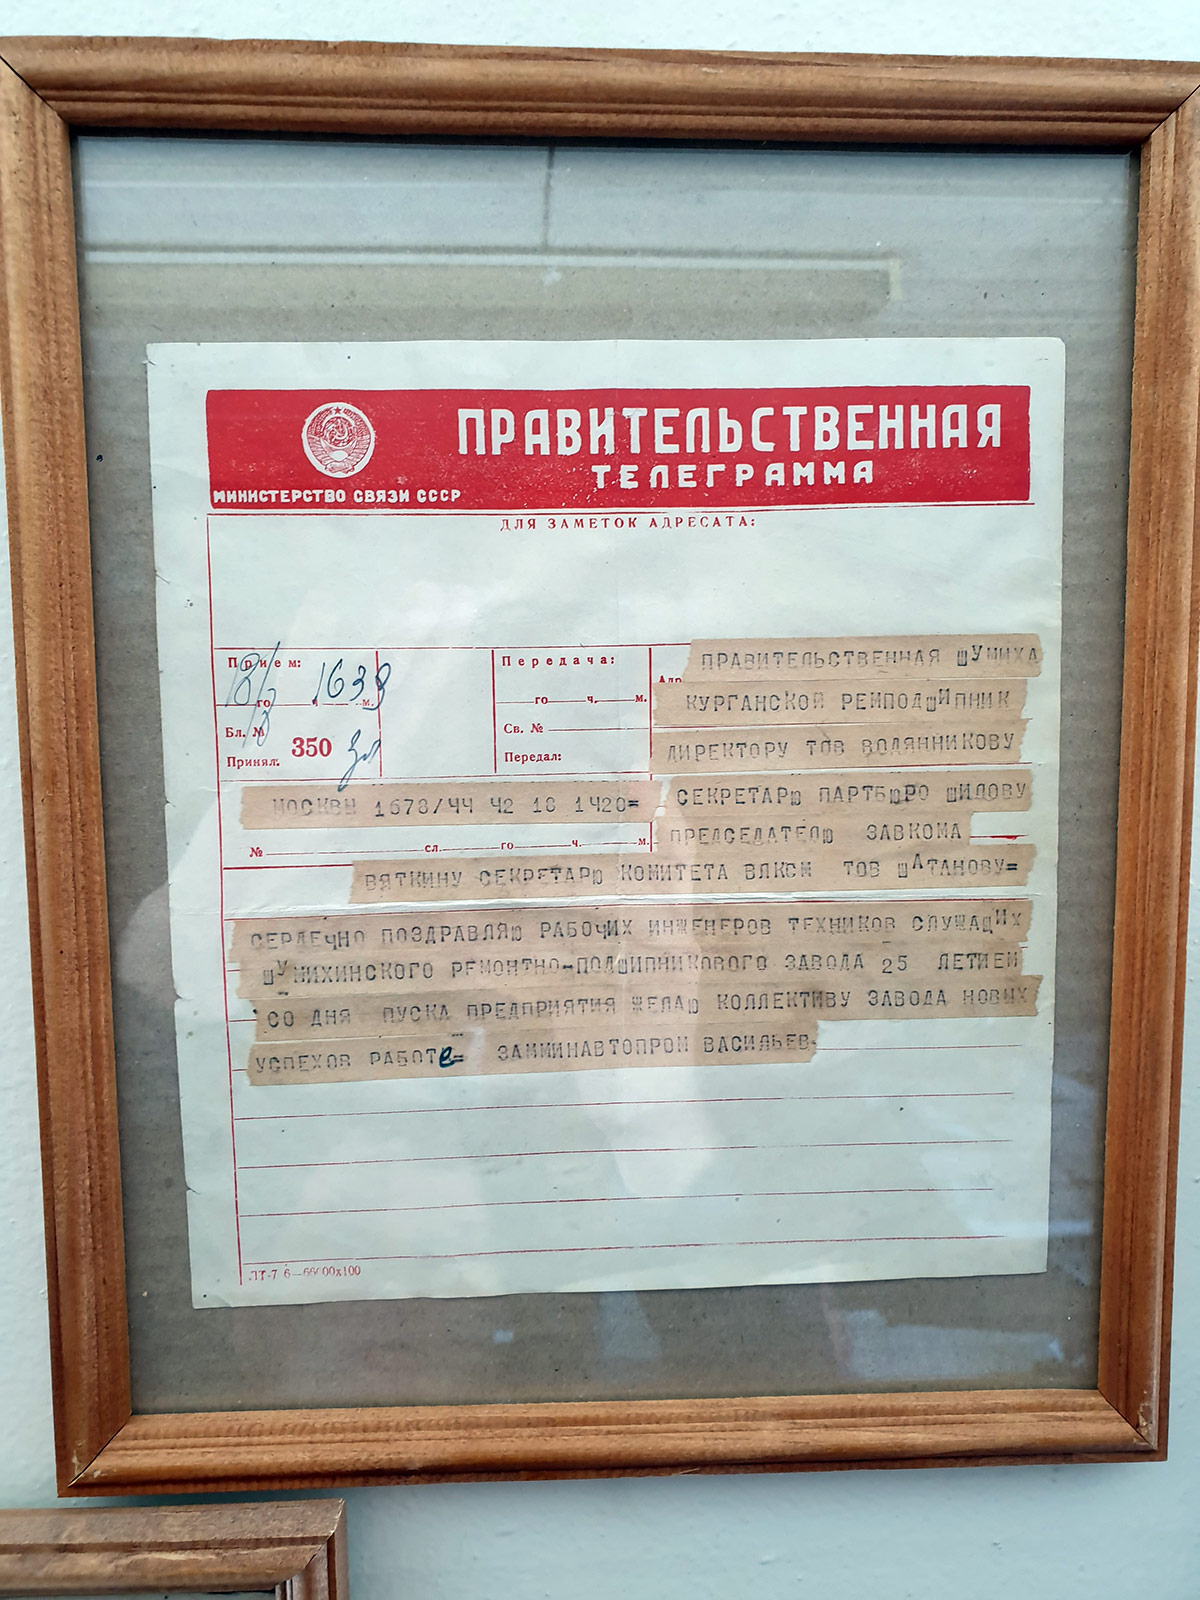 ПРАВИТЕЛЬСТВЕННАЯ
ТЕЛЕГРАММА
МИНИСТЕРСТВО СВЯЗИ СССР
ДЛЯ ЗАМЕТОК АДРЕСАТА:
Прием:
18/
1639
го ч. м.
Бл. №
Принял:
350
Передача:
го ч. м.
Св. №
Передал:
Адр
ПРАВИТЕЛЬСТВЕННАЯ ШУМИХА
КУРГАНСКОЙ РЕМПОДШИПНИК
ДИРЕКТОРУ ТОВ ВОДЯННИКОВУ
СЕКРЕТАРЮ ПАРТБЮРО ШИЛОВУ
ПРЕДСЕДАТЕЛЮ ЗАВКОМА
МОСКВЫ 1678/ЧЧ Ч2 18 1Ч20=
№ сл. го ч. м.
ВЯТКИНУ СЕКРЕТАРЮ КОМИТЕТА ВЛКСМ ТОВ ШАТАНОВУ=
СЕРДЕЧНО ПОЗДРАВЛЯЮ РАБОЧИХ ИНЖЕНЕРОВ ТЕХНИКОВ СЛУЖАЩИХ
ШУМИХИНСКОГО РЕМОНТНО-ПОДШИПНИКОВОГО ЗАВОДА 25 ЛЕТИЕМ
СО ДНЯ ПУСКА ПРЕДПРИЯТИЯ ЖЕЛАЮ КОЛЛЕКТИВУ ЗАВОДА НОВЫХ
УСПЕХОВ РАБОТЕ= ЗАММИНАВТОПРОМ ВАСИЛЬЕВ-
ЛТ-7 6—66000х100